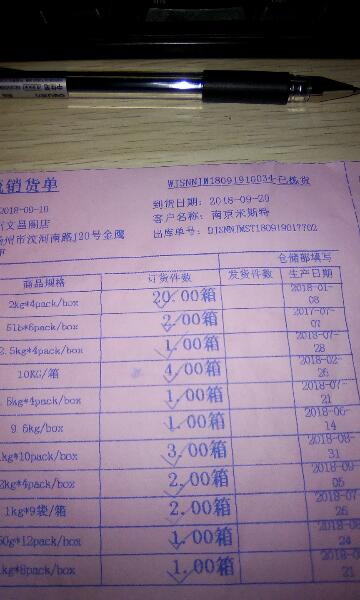 销货单
WJSNNJW18091910034-已拣货
2018-09-10
到货日期: 2018-09-20
文昌阁店
客户名称: 南京米斯特
州市汶河南路120号金鹰
出库单号: DJSNNJMST180919017702
仓储部填写
商品规格 订货件数 发货件数 生产日期
2kg*4pack/box 20.00箱 2018-01-08
5lb*6pack/box 2.00箱 2017-07-07
2.5kg*4pack/box 1.00箱 2018-07-28
10KG/箱 4.00箱 2018-02-26
5kg*4pack/box 1.00箱 2018-07-21
9.6kg/box 1.00箱 2018-06-14
1kg*10pack/box 3.00箱 2018-08-31
2kg*4pack/box 2.00箱 2018-09-05
1kg*9袋/箱 2.00箱 2018-07-26
50g*12pack/box 1.00箱 2018-0 24
kg*8pack/box 1.00箱 2018-0 21